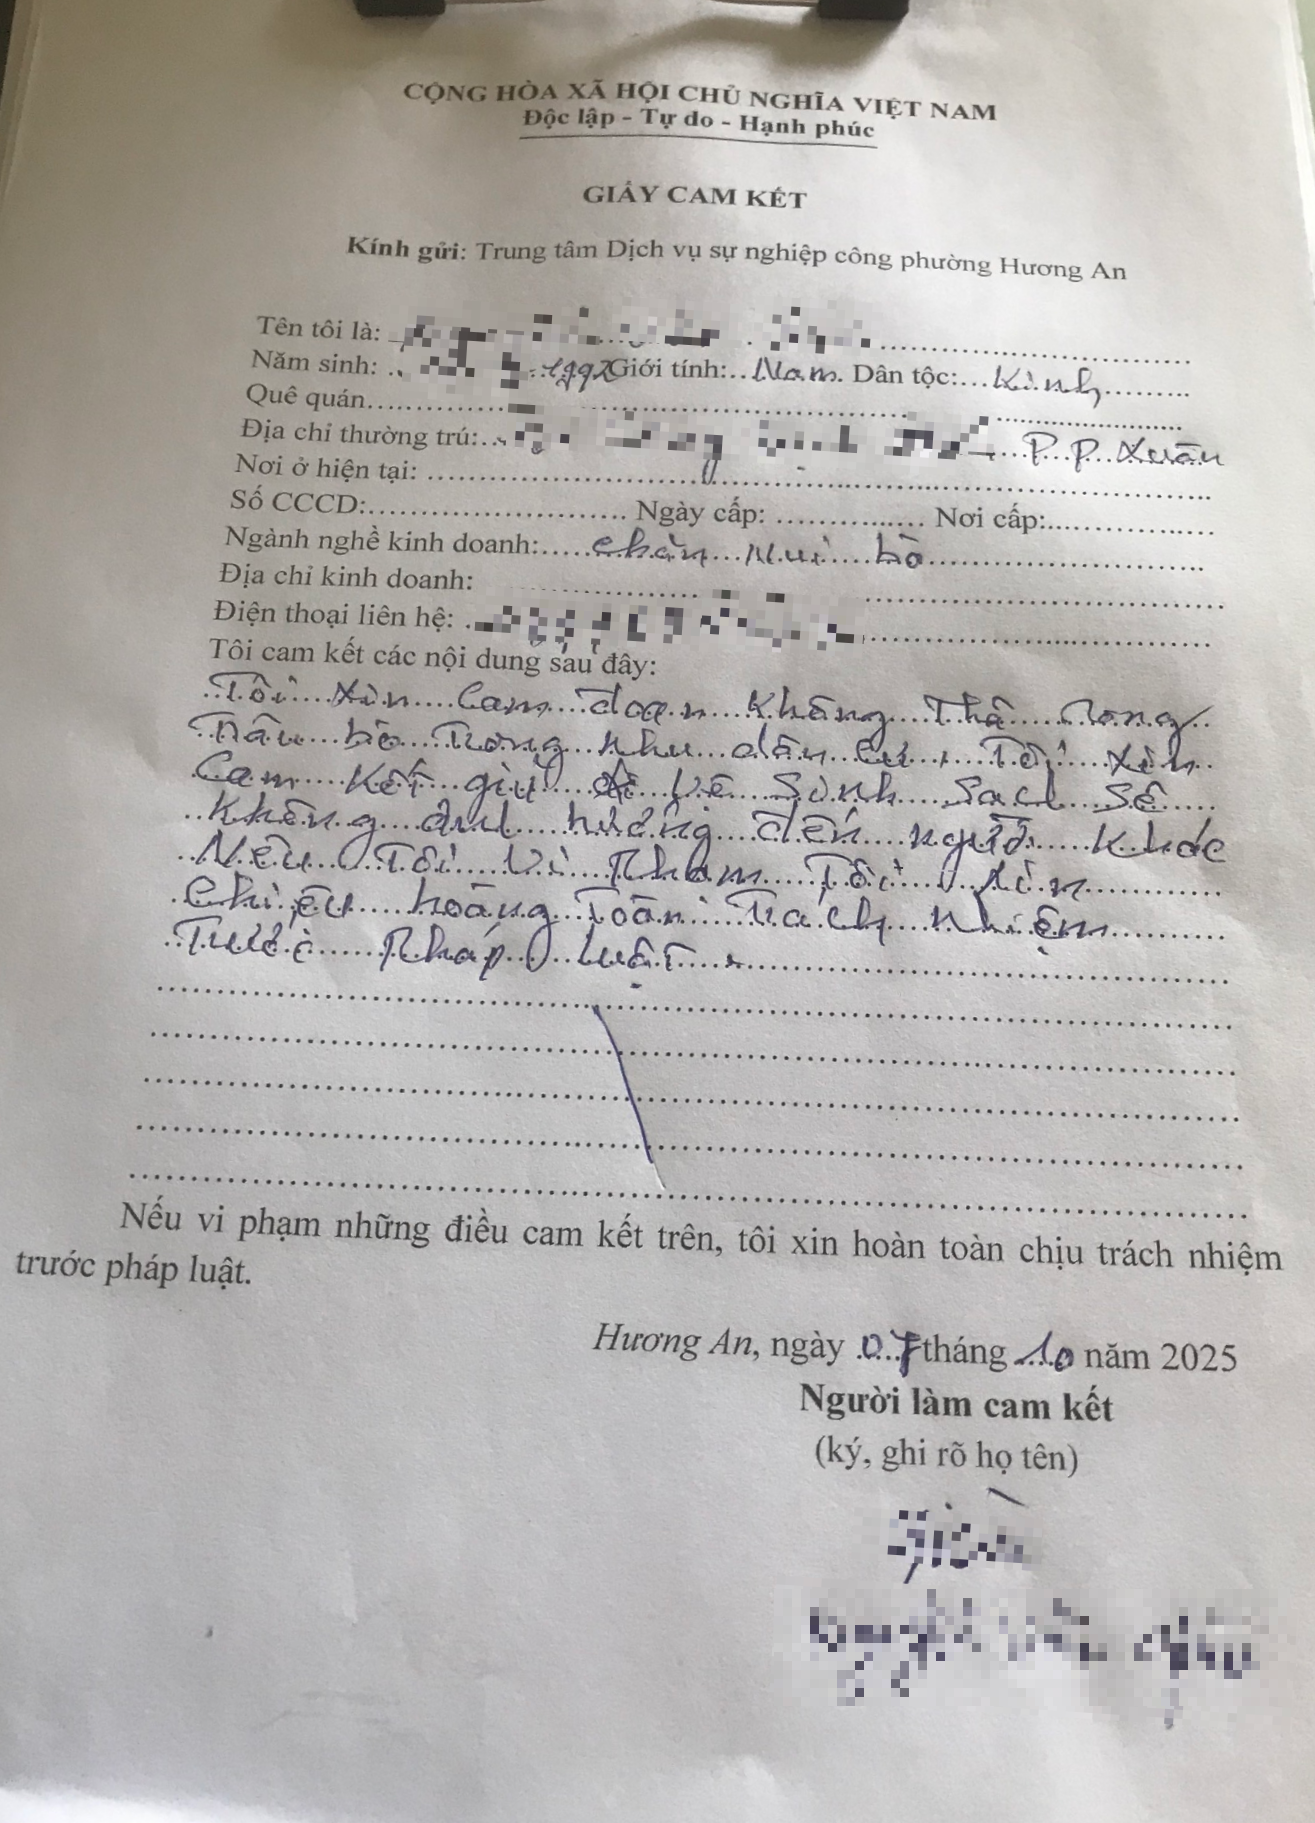 CỘNG HÒA XÃ HỘI CHỦ NGHĨA VIỆT NAM
Độc lập - Tự do - Hạnh phúc
GIẤY CAM KẾT
Kính gửi: Trung tâm Dịch vụ sự nghiệp công phường Hương An
Tên tôi là:
Năm sinh: 1992 Giới tính: Nam. Dân tộc: Kinh
Quê quán
Địa chỉ thường trú: P. P. Xuân
Nơi ở hiện tại:
Số CCCD: Ngày cấp: Nơi cấp:
Ngành nghề kinh doanh: chăn nuôi bò
Địa chỉ kinh doanh:
Điện thoại liên hệ:
Tôi cam kết các nội dung sau đây:
Tôi xin cam đoan không thả rong
trâu bò trong khu dân cư, Tôi xin
cam kết giữ vệ sinh sạch sẽ
không ảnh hưởng đến người khác
Nếu Tôi vi phạm Tôi xin
chịu hoàng toàn trách nhiệm
trước pháp luật.
Nếu vi phạm những điều cam kết trên, tôi xin hoàn toàn chịu trách nhiệm
trước pháp luật.
Hương An, ngày 07 tháng 10 năm 2025
Người làm cam kết
(ký, ghi rõ họ tên)